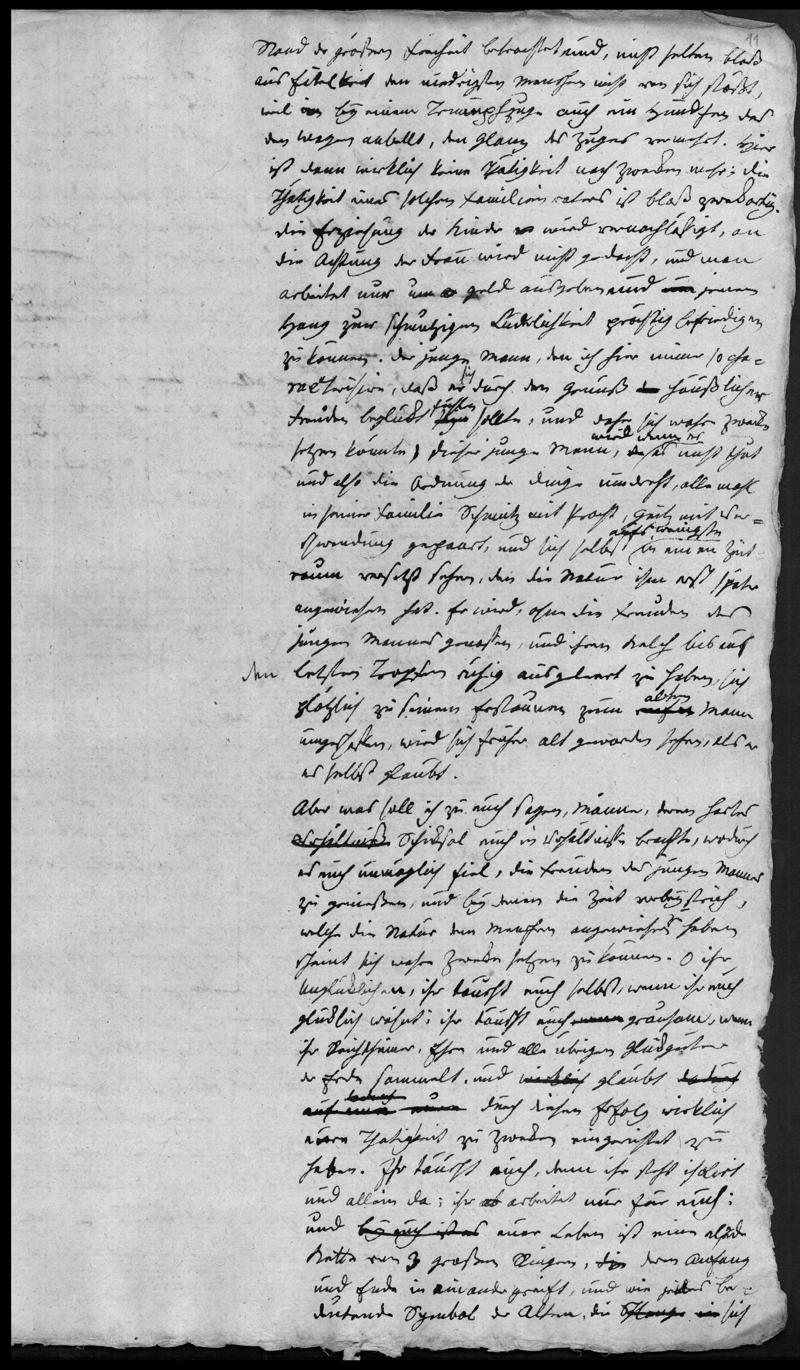 11
Stand der größern Freiheit betrachtet und, nicht selten bloß
aus Eitelkeit den niedrigsten Menschen nicht von sich stößt,
weil bey einem Triumpfzuge auch ein Hündchen das
den Wagen anbellt, den Glanz des Zuges vermehrt. Hier
ist denn wirklich keine Thätigkeit nach Zwecken mehr; die
Thätigkeit eines solchen Familienvaters ist bloß zweckartig.
die Erziehung der Kinder wird vernachläßigt, an
die Achtung der Frau wird nicht gedacht, und man
arbeitet nur um Geld ausgeben und jenen
Hang zur schmutzigen Lüderlichkeit prächtig befriedigen
zu können. Der junge Mann, den ich hier immer so cha=
racterisire, daß er sich durch den Genuß häußlicher
Freuden beglückt fühlen sollte, und daher sich wahre Zwecke
setzen könnte, dieser junge Mann, wird wenn er dieses nicht thut
und also die Ordnung der Dinge umdreht, allemahl
in seiner Familie Schmutz mit Pracht, Geitz mit Ver=
schwendung gepaart, und sich selbst aufs wenigste in einen Zeit=
raum versetzt sehen, den die Natur ihm erst später
angewiesen hat. Er wird, ohne die Freuden des
jungen Mannes genossen, und ihren Kelch bis auf
den letzten Tropfen ruhig ausgeleert zu haben, sich
plötzlich zu seinem Erstaunen zum alten Mann
umgeschaffen, wird sich früher alt geworden sehen, als er
es selbst glaubt.
Aber was soll ich zu euch sagen, Männer, deren hartes
Schicksal euch in Verhältnisse brachte, wodurch
es euch unmöglich fiel, die Freuden des jungen Mannes
zu genießen, und bey denen die Zeit vorbeystrich,
welche die Natur dem Menschen angewiesen haben
scheint sich wahre Zwecke setzen zu können. O ihr
Unglücklichen, ihr täuscht euch selbst, wenn ihr euch
glücklich wähnt; ihr täuscht euch grausam, wenn
ihr Reichthümer, Ehre und alle übrigen Glücksgüter
der Erde sammelt, und glaubt
durch diesen Erfolg wirklich
eure Thätigkeit zu Zwecken eingerichtet zu
haben. Ihr täuscht euch, denn ihr steht isolirt
und allein da; ihr arbeitet nur für euch;
und euer Leben ist eine elende
Kette von 3 großen Ringen, deren Anfang
und Ende in einander greift, und wie jenes be=
deutende Symbol der Alten, die sich